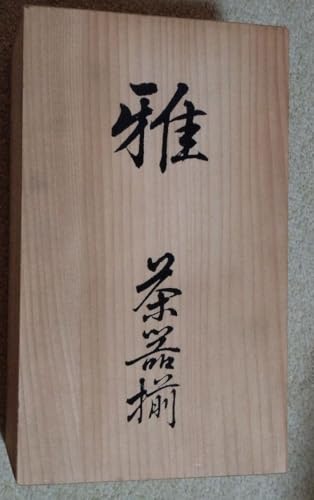 雅
茶器揃